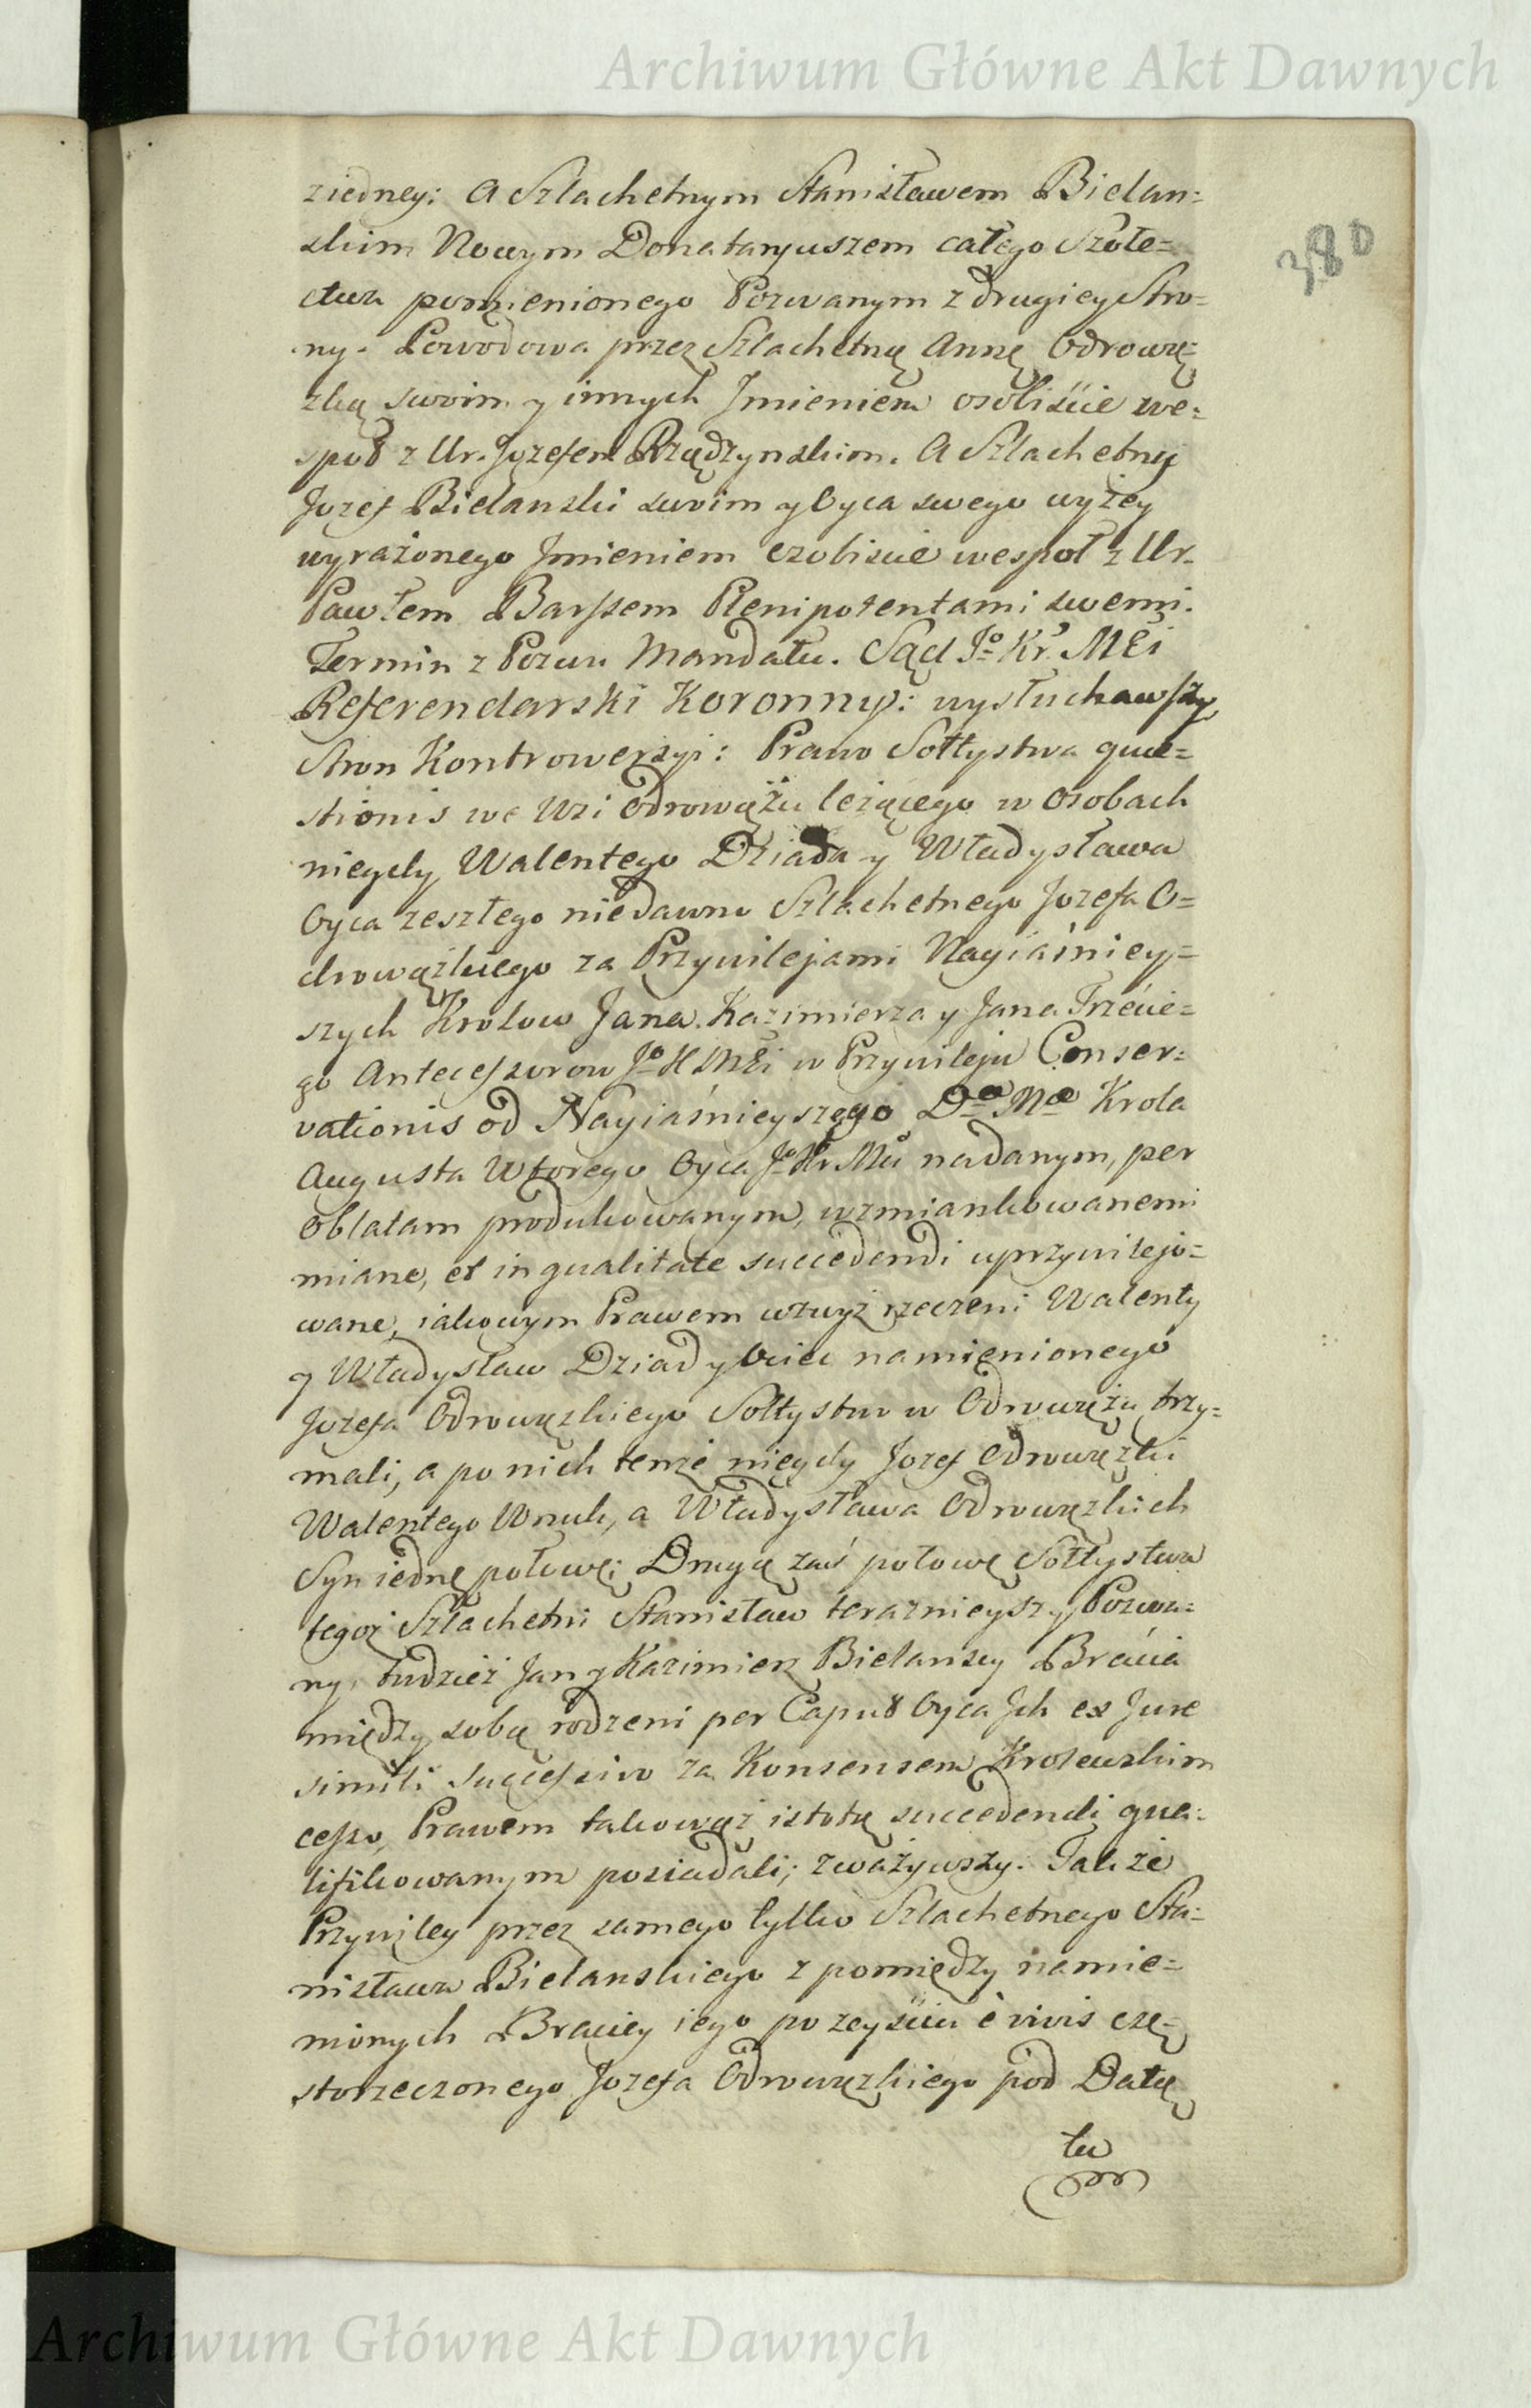 Archiwum Główne Akt Dawnych
380
ziedney: A Szlachetnym Stanisławem Bielan=
skim Nowym Donataryuszem całego Szołe=
ctwa pomienionego Pozwanym z drugiey Stro=
ny. Powodowa przez Szlachetnę Annę Odrowę=
zką swoim y innych Jmieniem osobiście we=
społ z Ur. Jozefem Rządzynskim. A Szlachetny
Jozef Bielanski swoim y Oyca swego wyżey
wyrażonego Jmieniem osobiscie wespoł z Ur.
Pawłem Barssem Plenipotentami swemi.
Termin z Pozwu Mandatu. Sąd Jo Kr Mći
Referendarski Koronny: wysłuchawszy
Stron Kontrowersyi: Prawo Sołtystwa que=
stionis we Wsi Odrowążu leżącego w osobach
niegdy Walentego Dziada y Władysława
Oyca zeszłego niedawno Szlachetnego Jozefa O=
drowązkiego za Przywilejami Nayiaśniey=
szych Krolow Jana Kazimierza y Jana Trzecie=
go Antecessorow Jo K Mći w Przywileju Conser=
vationis od Nayiaśnieyszego Dæ Mæ Krola
Augusta Wtorego Oyca Jo Kr Mći nadanym, per
Oblatam produkowanym, wzmiankowanemi
miane, et in qualitate succedendi uprzywilejo=
wane, iakowym Prawem wzwyż rzeczeni Walenty
y Władysław Dziad y Ociec namienionego
Jozefa Odrowęzkiego Sołtystwo w Odrowężu trzy=
mali, a po nich tenże niegdy Jozef Odrowęzki
Walentego Wnuk, a Władysława Odrowęzkich
Syn iednę połowę; Drugę zaś połowę Sołtystwa
tegoż Szlachetni Stanisław teraznieyszy Pozwa=
ny, tudzież Jan y Kazimierz Bielanscy Bracia
między sobą rodzeni per Caput Oyca Jch ex Jure
simili successivo za Konsensem Krolewskim
cesso, Prawem takowąż istotę succedendi qua=
lifikowanym posiadali; zważywszy. Tak że
Przywiley przez samego tylko Szlachetnego Sta=
nisława Bielanskiego z pomiędzy namie=
nionych Braciey iego po zeyściu è vivis czę=
storzeczonego Jozefa Odrowęzkiego pod Datę
tu
Archiwum Główne Akt Dawnych